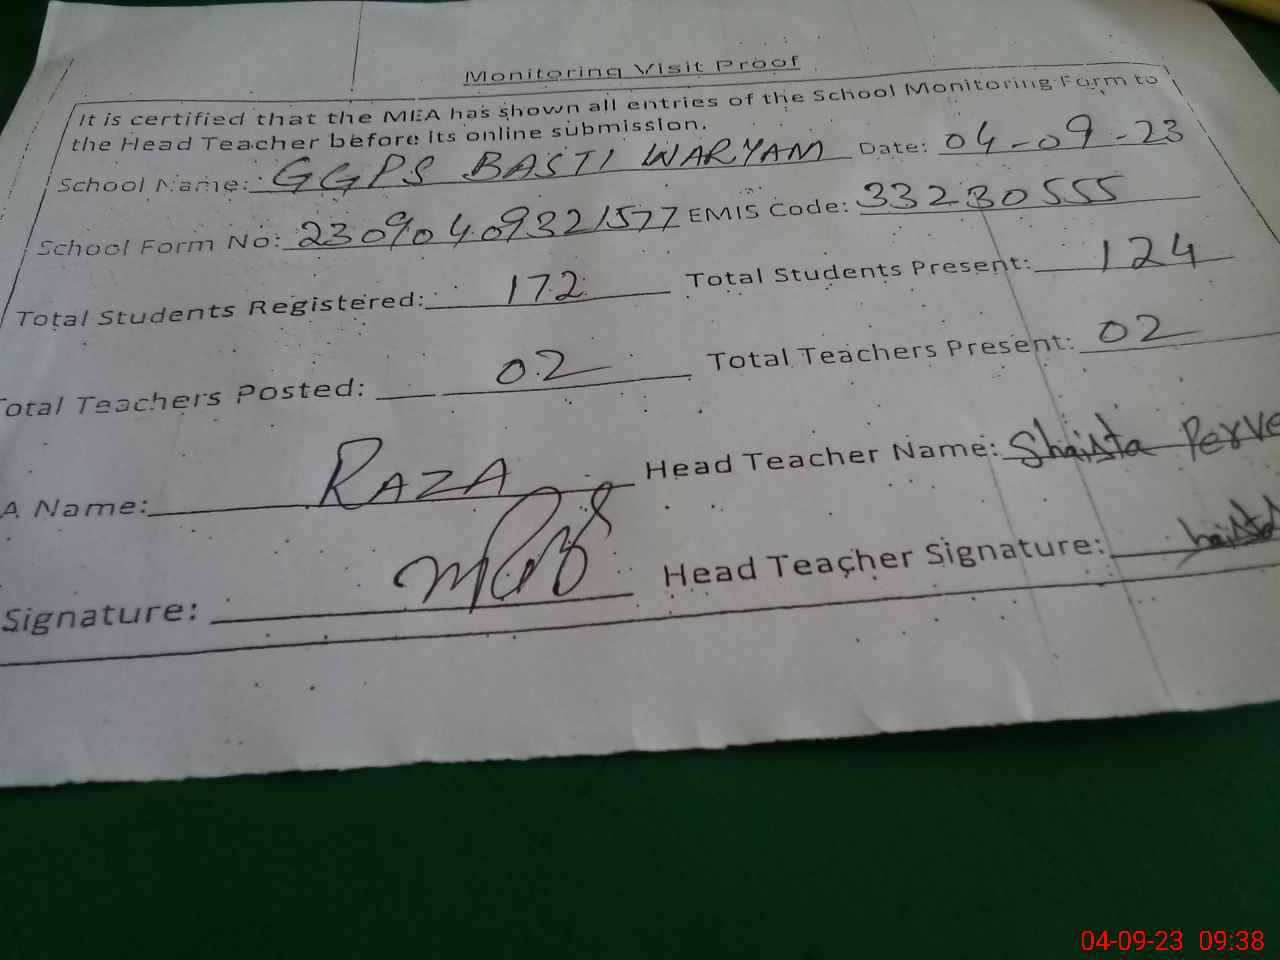 Monitoring Visit Proof
It is certified that the MEA has shown all entries of the School Monitoring Form to
the Head Teacher before its online submission.
School Name: GGPS BASTI WARYAM Date: 04-09-23
School Form No: 23090409321577 EMIS Code: 33230555
Total Students Registered: 172 Total Students Present: 124
Total Teachers Posted: 02 Total Teachers Present: 02
A Name: RAZA Head Teacher Name: Shaista Perve
Signature: Head Teacher Signature:
04-09-23 09:38